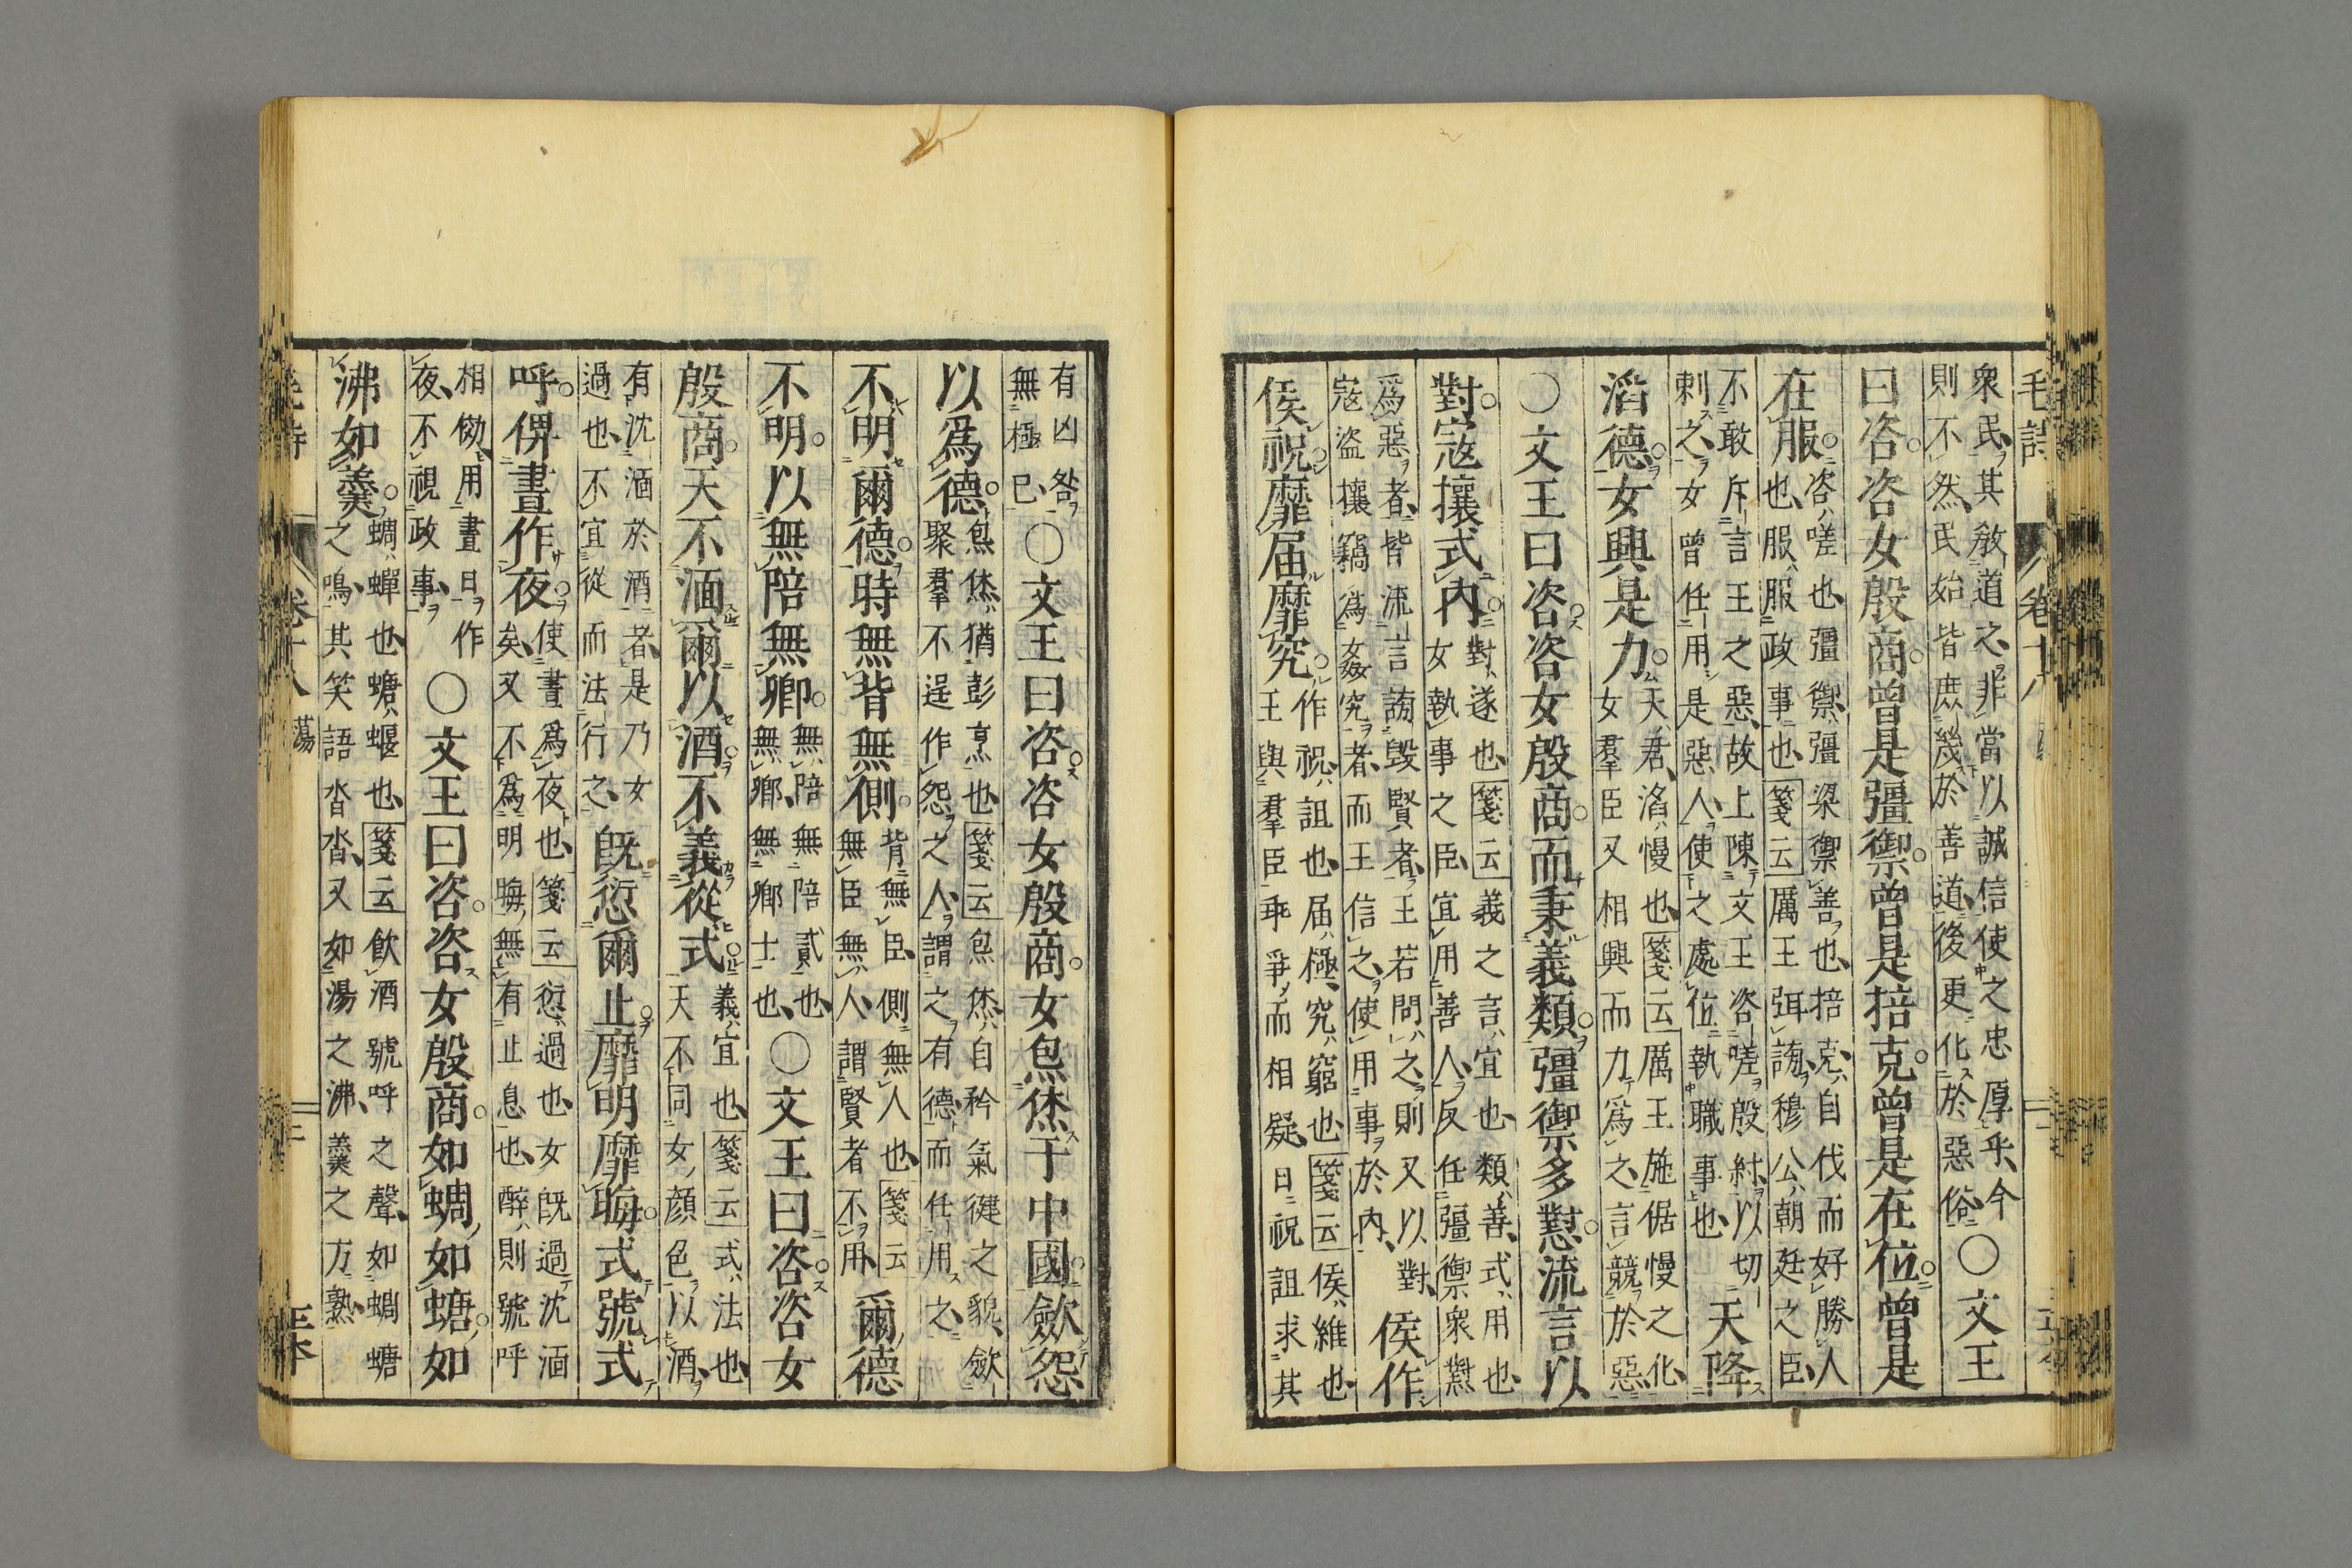 毛詩 卷十八 二
衆民其敎道之非當以誠信使之忠厚乎今
則不然民始皆庶幾於善道後更化於惡俗
○文王
曰咨咨女殷商曾是彊禦曾是掊克曾是在位曾是
在服
咨嗟也彊禦彊梁禦善也掊克自伐而好勝人
也服服政事也箋云厲王弭謗穆公朝廷之臣
不敢斥言王之惡故上陳文王咨嗟殷紂以切
刺之女曾任用是惡人使之處位執職事也
天降
滔德女興是力
天君滔慢也箋云厲王施倨慢之化
女羣臣又相興而力爲之言競於惡
○文王曰咨咨女殷商而秉義類彊禦多懟流言以
對寇攘式内
對遂也箋云義之言宜也類善式用也
女執事之臣宜用善人反任彊禦衆懟
爲惡者皆流言謗毀賢者王若問之則又以對
寇盜攘竊爲姦宄者而王信之使用事於内
侯作
侯祝靡届靡究
作祝詛也届極究窮也箋云侯維也
王與羣臣乖爭而相疑日祝詛求其
有凶咎
無極已
○文王曰咨咨女殷商女炰烋于中國歛怨
以爲德
炰烋猶彭烹也箋云炰烋自矜氣健之貌歛
聚羣不逞作怨之人謂之有德而任用之
不明爾德時無背無側
背無臣側無人也箋云
無臣無人謂賢者不用
爾德
不明以無陪無卿
無陪無陪貳也
無卿無卿士也
○文王曰咨咨女
殷商天不湎爾以酒不義從式
義宜也箋云式法也
天不同女顔色以酒
有沈湎於酒者是乃女
過也不宜從而法行之
旣愆爾止靡明靡晦式號式
呼俾晝作夜
使晝爲夜也箋云愆過也女旣過沈湎
矣又不爲明晦無有止息也醉則號呼
相傚用晝日作
夜不視政事
○文王曰咨咨女殷商如蜩如螗如
沸如羹
蜩蟬也螗蝘也箋云飲酒號呼之聲如蜩螗
之鳴其笑語沓沓又如湯之沸羹之方熟
毛詩 卷十八 蕩 三